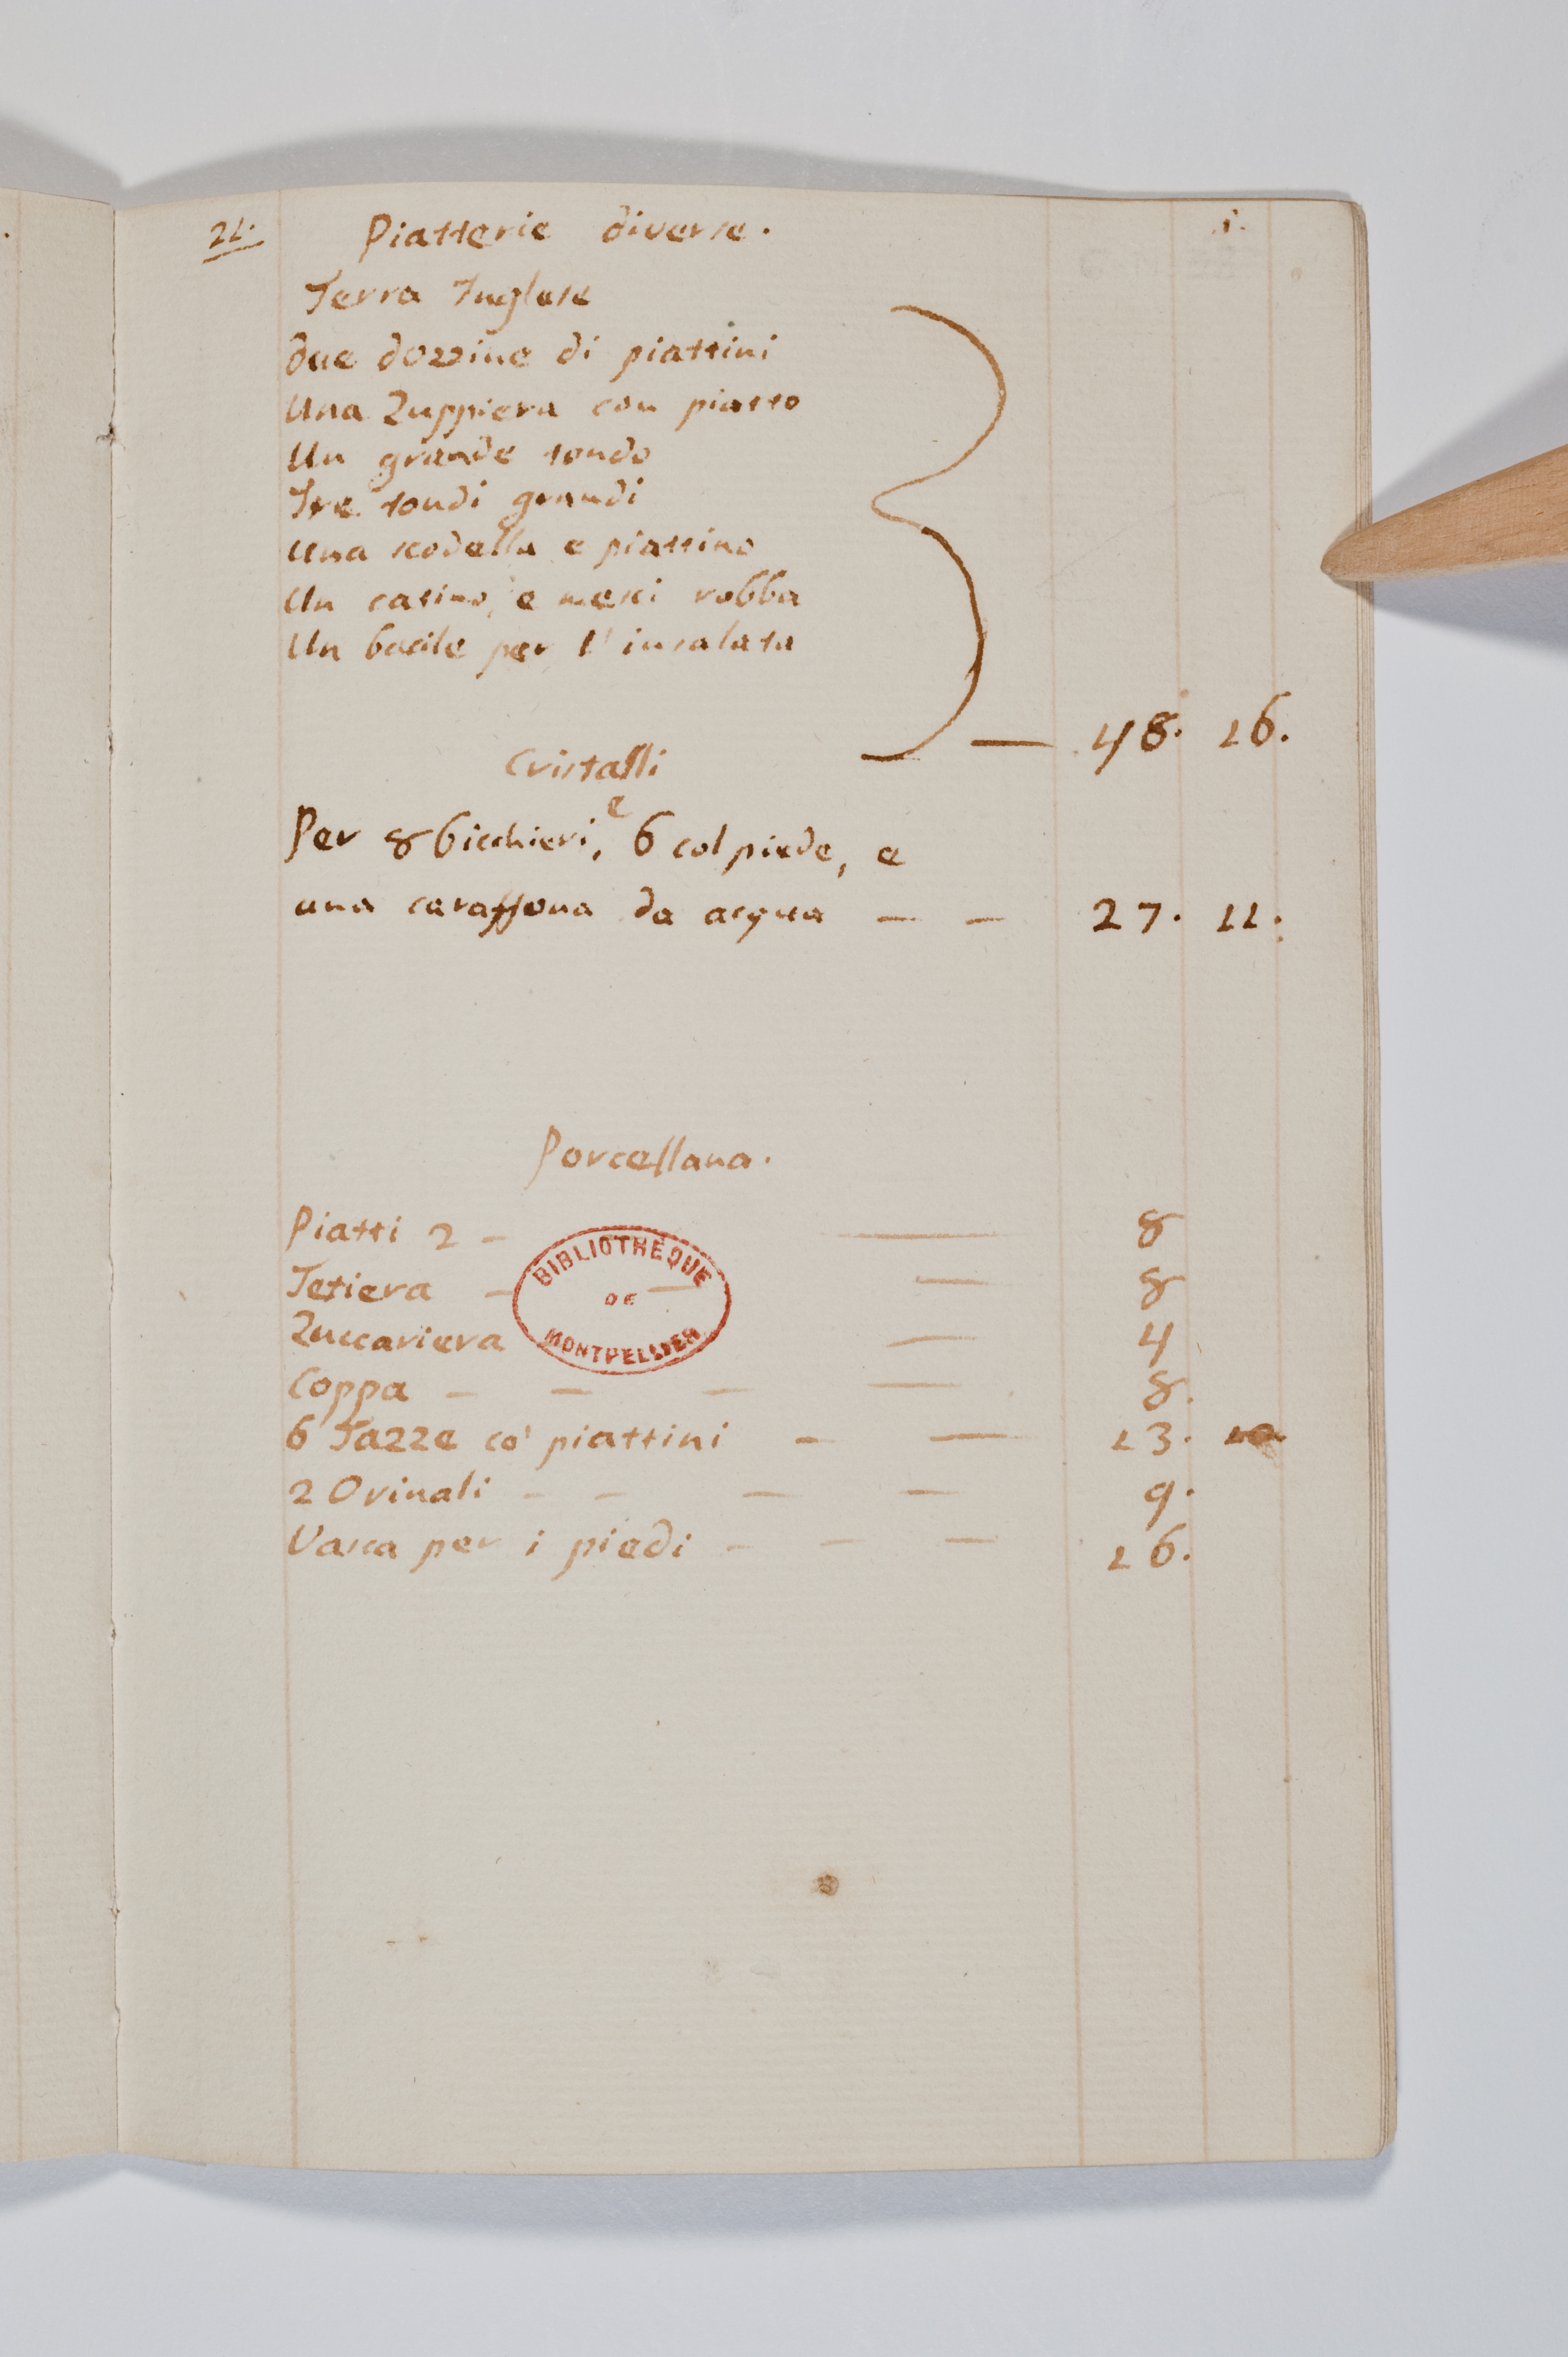 21. Piatterie diverse.
Terra Inglese
due dozzine di piattini
Una Zuppiera con piatto
Un grande tondo
Tre tondi grandi
Una scodella e piattino
Un catino, e mesci robba
Un bacile per l'insalata
48. 16.
Cristalli
Per 8 bicchieri, e 6 col piede, e
una caraffona da acqua — — 27. 11.
Porcellana.
Piatti 2 — — 8
Tetiera — — — 8
Zuccariera — 4
Coppa — — — — 8.
6 Tazze co' piattini — — 13. 10
2 Orinali — — — — 9.
Vasca per i piedi — — — 16.
BIBLIOTHÈQUE
DE
MONTPELLIER